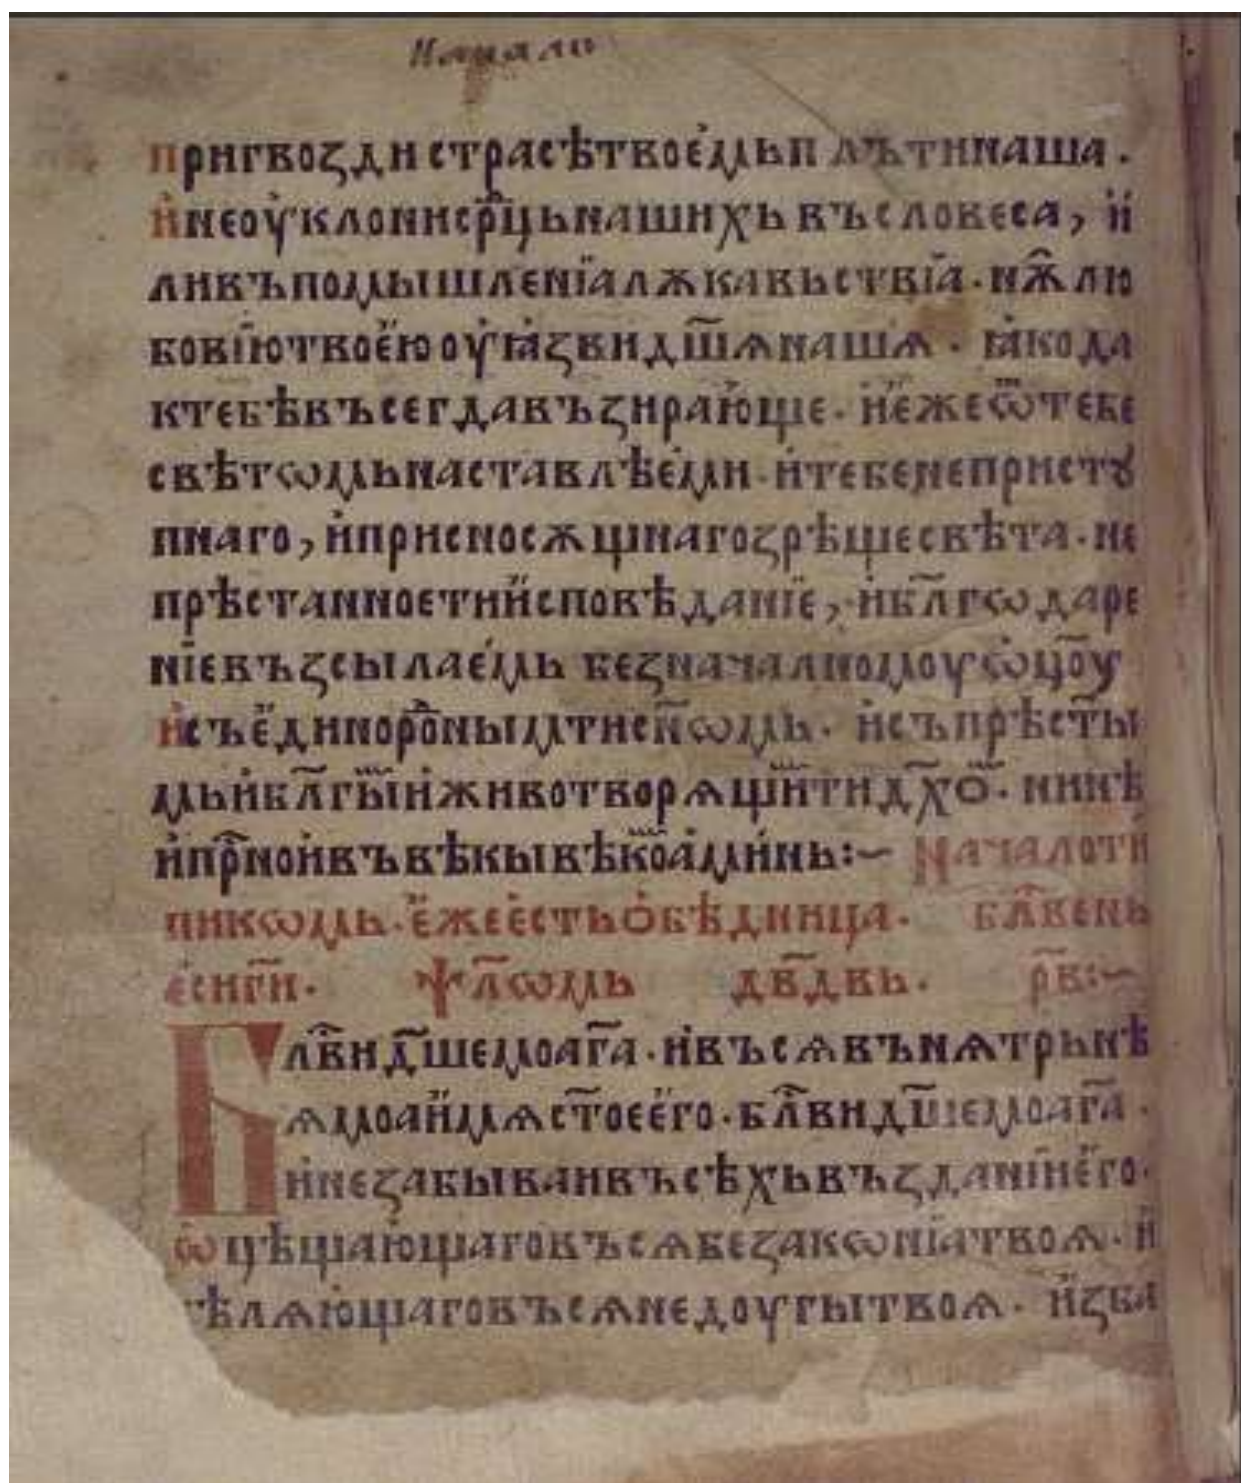 Начало
пригвозди страсѣ твоéмь плъти наша.
и҆ неоу҆клони ср҃ць нашихь въ словеса, и҆
ли въ помышленїа лѫкавьствїа. нѫ҆ лю
бовїю твоéю оу҆ꙗ҆зви дш҃ѧ нашѧ. ꙗ҆ко да
к тебѣ въсегда възирающе. и҆ éже ѿ тебе
свѣтѡмь наставлѣéми. и҆ тебе непристꙋ
пнаго, и҆ присносѫщнаго зрѣще свѣта. не
прѣстанное ти и҆сповѣданїе, и҆ бл҃гѡдаре
нїе възсылаéмь безначалномоу ѡ҆ц҃оу
и҆ съ éдинорⷪ҇ным ти сн҃ѡмь. и҆ съ прѣст҃ы
мь и҆ бл҃гыⷨ и҆ животворѧщїиⷨ ти дх҃оⷨ. нинѣ
и҆ прⷭ҇но и҆ въ вѣкы вѣкоⷨ а҆минь:~ Начало ти
пикѡмь. éже éсть ѻ҆бѣдница. бл҃вень
éси ги҃. ѱл҃ѡмь дв҃двь. р҃в:~
Бл҃ви дш҃е моа г҃а. и҆ въсѧ вънѧтрьнѣ
ѧ моа и҆мѧ ст҃ое éго. бл҃ви дш҃е моа г҃а.
и҆ не забываи въсѣхь възданїи éго.
ѡ҆цѣщающаго въсѧ безакѡнїа твоѧ. и҆
цѣлѧющаго въсѧ недоугы твоѧ. и҆зба